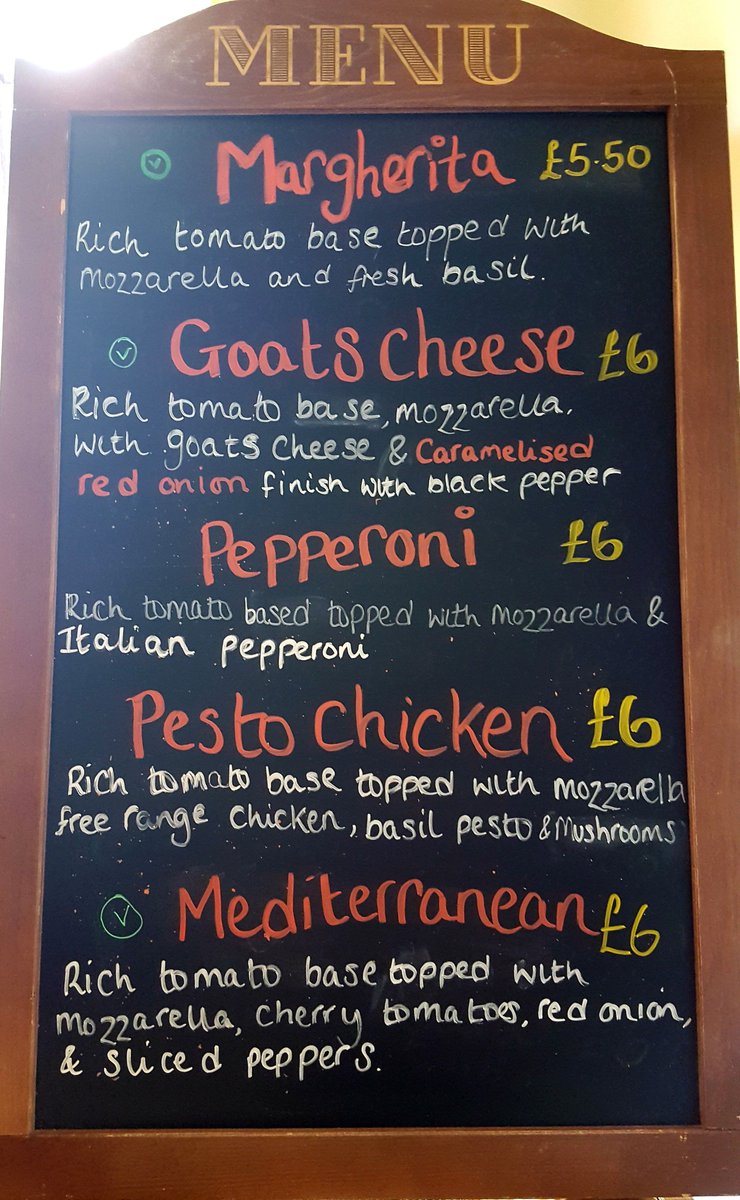 MENU
Margherita £5.50
Rich tomato base topped with
mozzarella and fresh basil.
Goats cheese £6
Rich tomato base, mozzarella,
with goats cheese & Caramelised
red onion finish with black pepper
Pepperoni £6
Rich tomato based topped with mozzarella &
Italian pepperoni
Pesto chicken £6
Rich tomato base topped with mozzarella
free range chicken, basil pesto & Mushrooms
Mediterranean £6
Rich tomato base topped with
mozzarella, cherry tomatoes, red onion,
& sliced peppers.